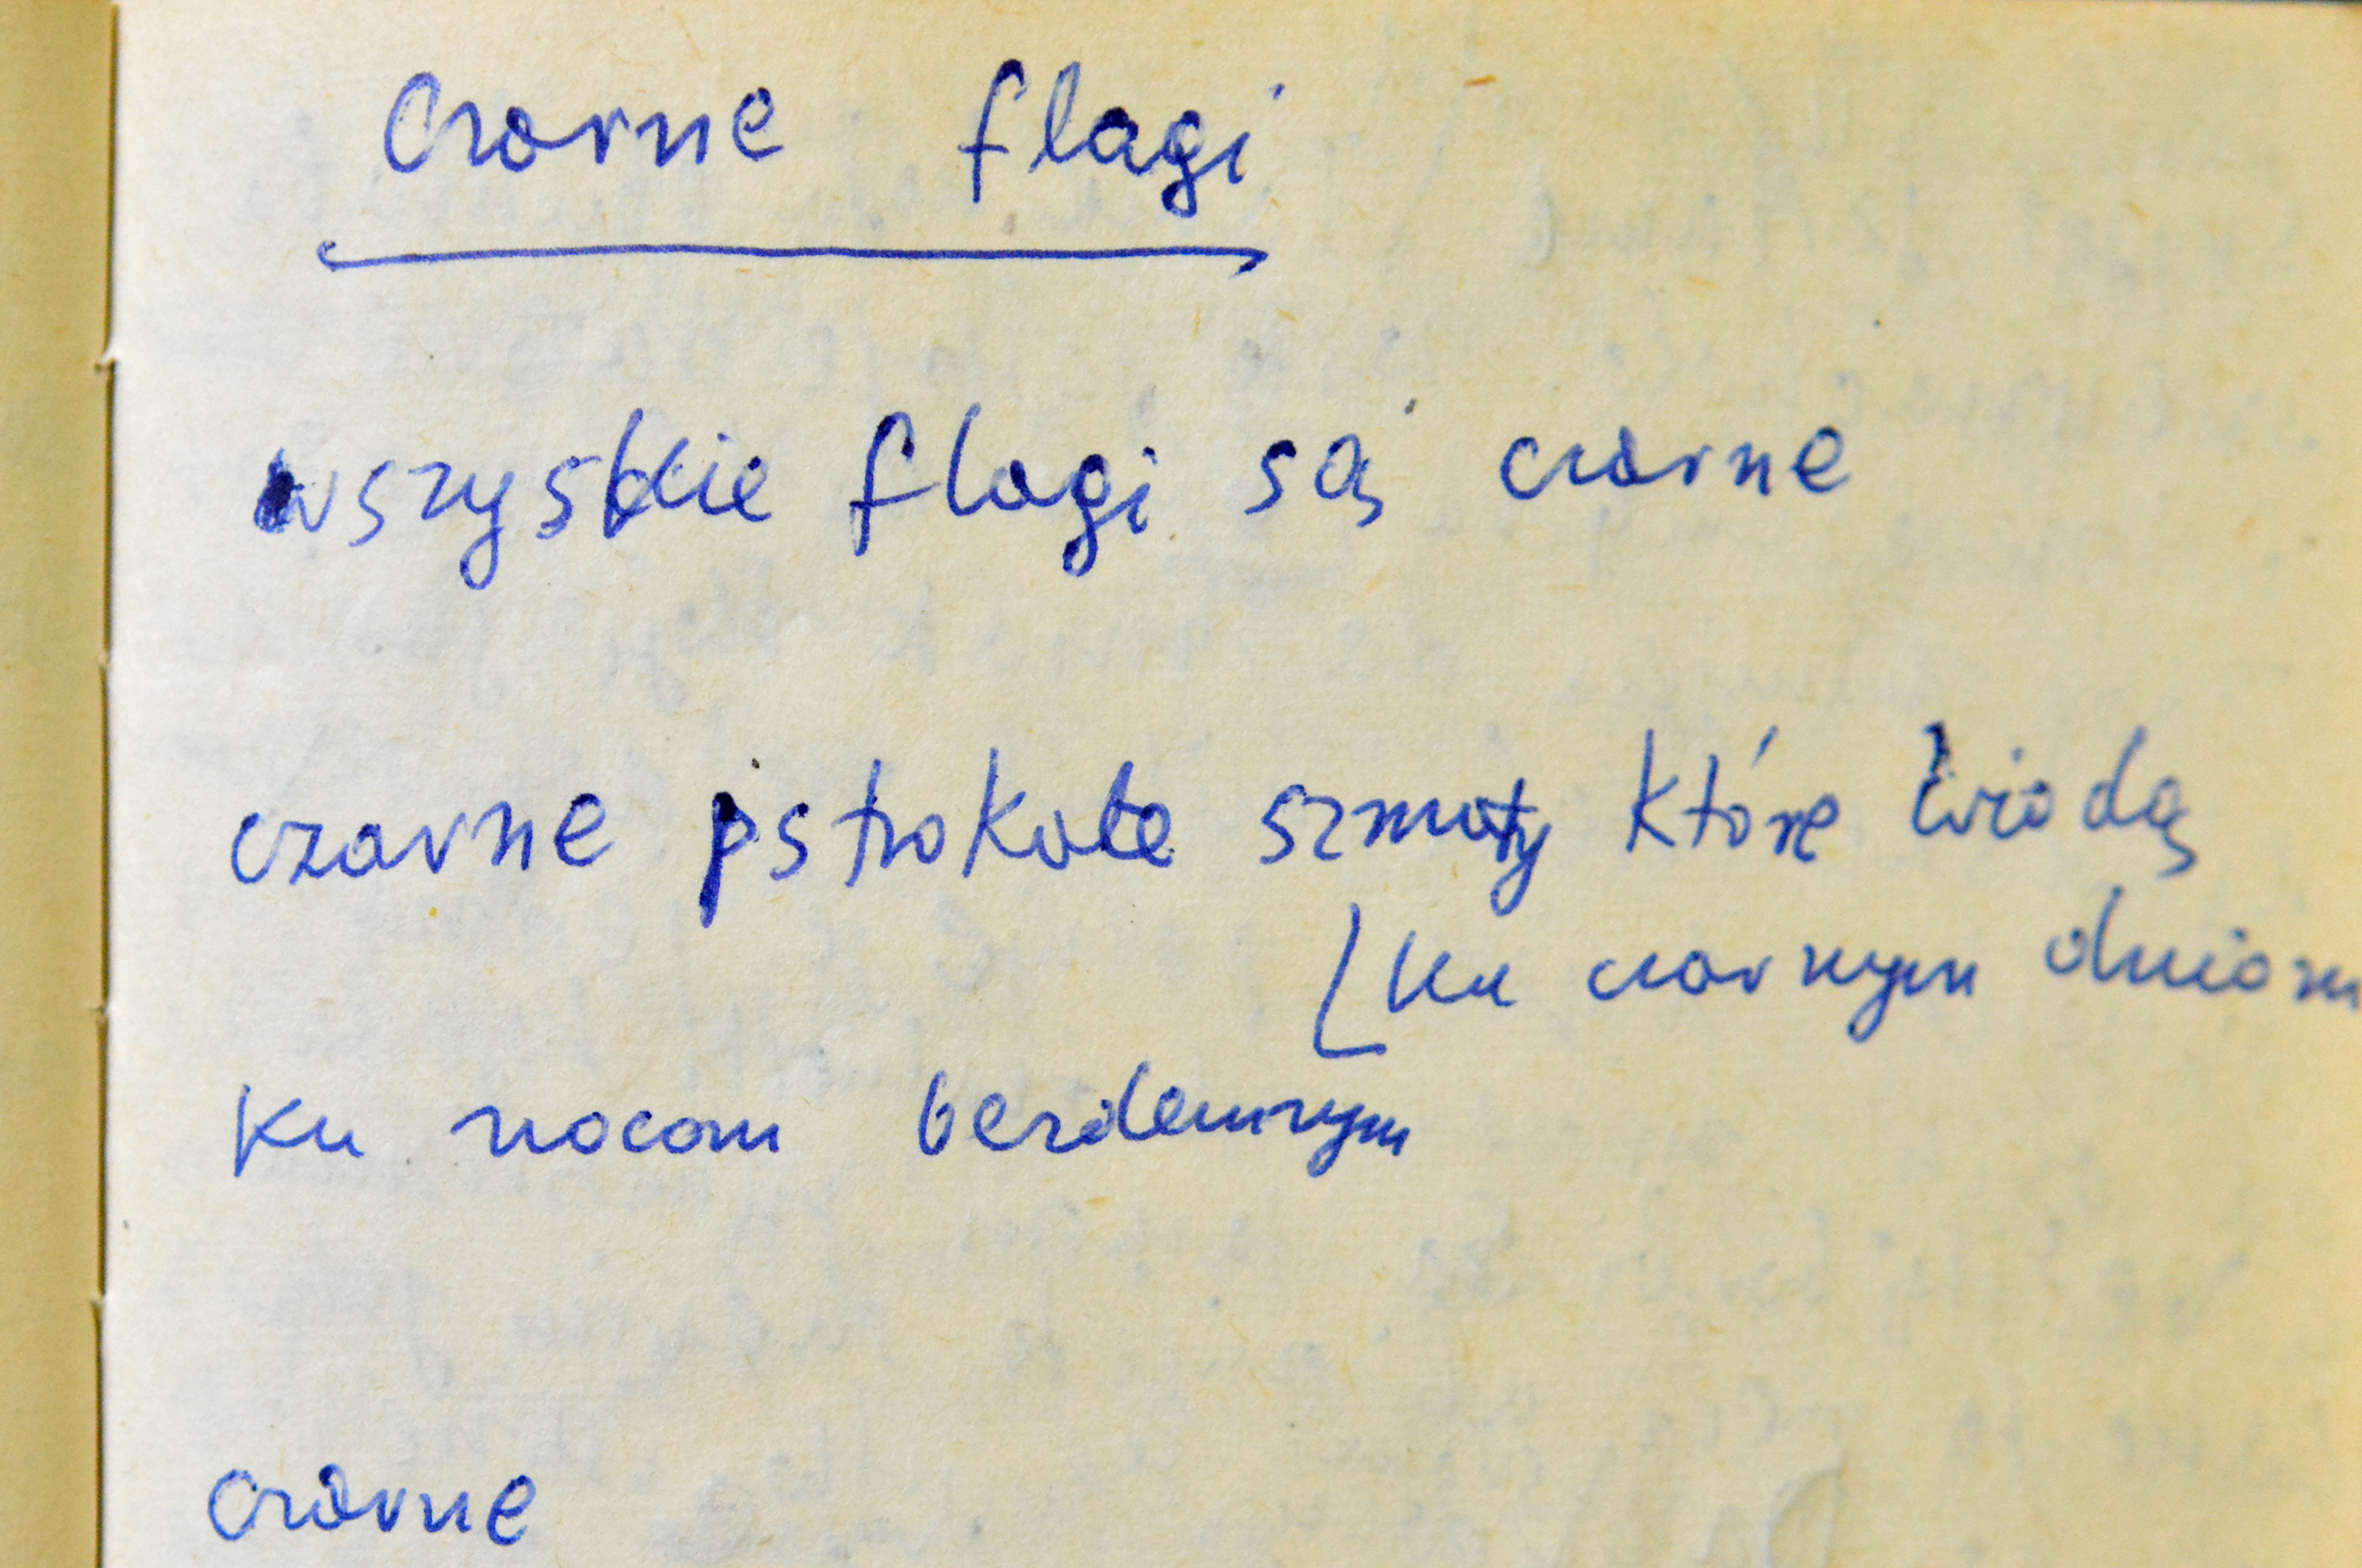 Czarne flagi
wszystkie flagi są czarne
czarne pstrokate szmaty które wiodą
ku czarnym dniom
ku nocom bezdennym
czarne